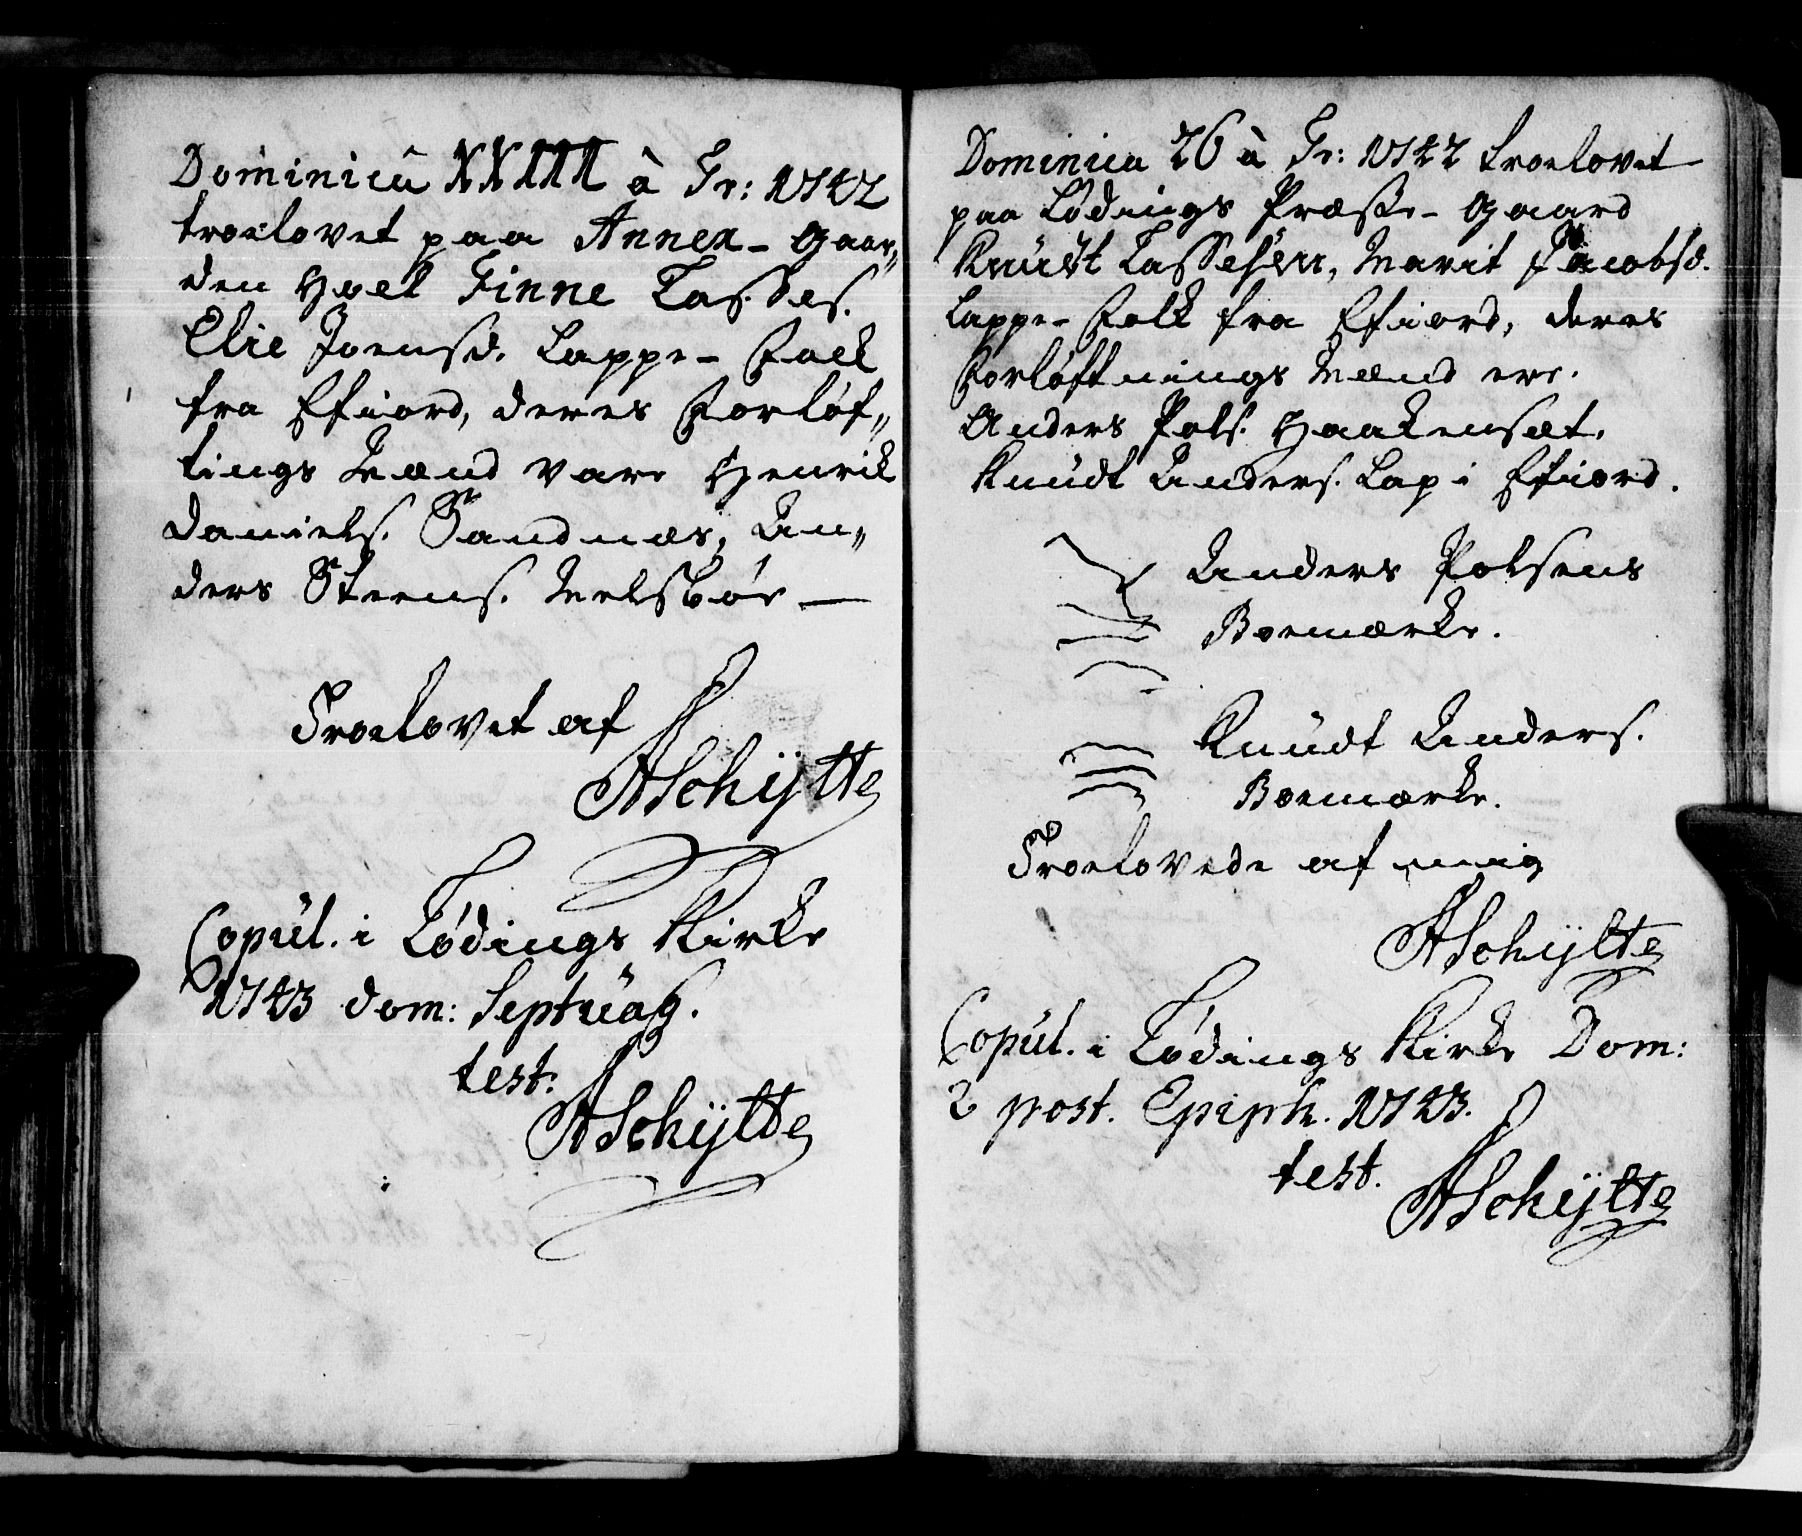 Dominica XXIIII à Tr: 1742
troelovet paa Annex-Gaar„
den Hoel Finne Lasses.
Elie Joensd. Lappe-Folk
fra Efiord, deres Forløf„
tings Mænd vare Henrik
Daniels. Sandnæs, An„
ders Steens.
Troelovet af
ASchÿtte
Copul. i Lødings Kirke
1743 dom: Septuag.
test:
ASchÿtte
Dominica 26 à Tr: 1742 troelovet
paa Lødings Præste-Gaard
Knudt Lassesøn, Marit Jacobsd.
Lappe-Folk fra Efiord, deres
Forløftnings Mænd ere.
Anders Pols. Haakensæt.
Knudt Anders. Lap i Efiord.
Anders Polsens
Boemærke.
Knudt Anders.
Boemærke.
Troelovede af mig
ASchÿtte
Copul. i Lødings Kirke Dom:
2 post. Epiph. 1743.
test.
ASchÿtte